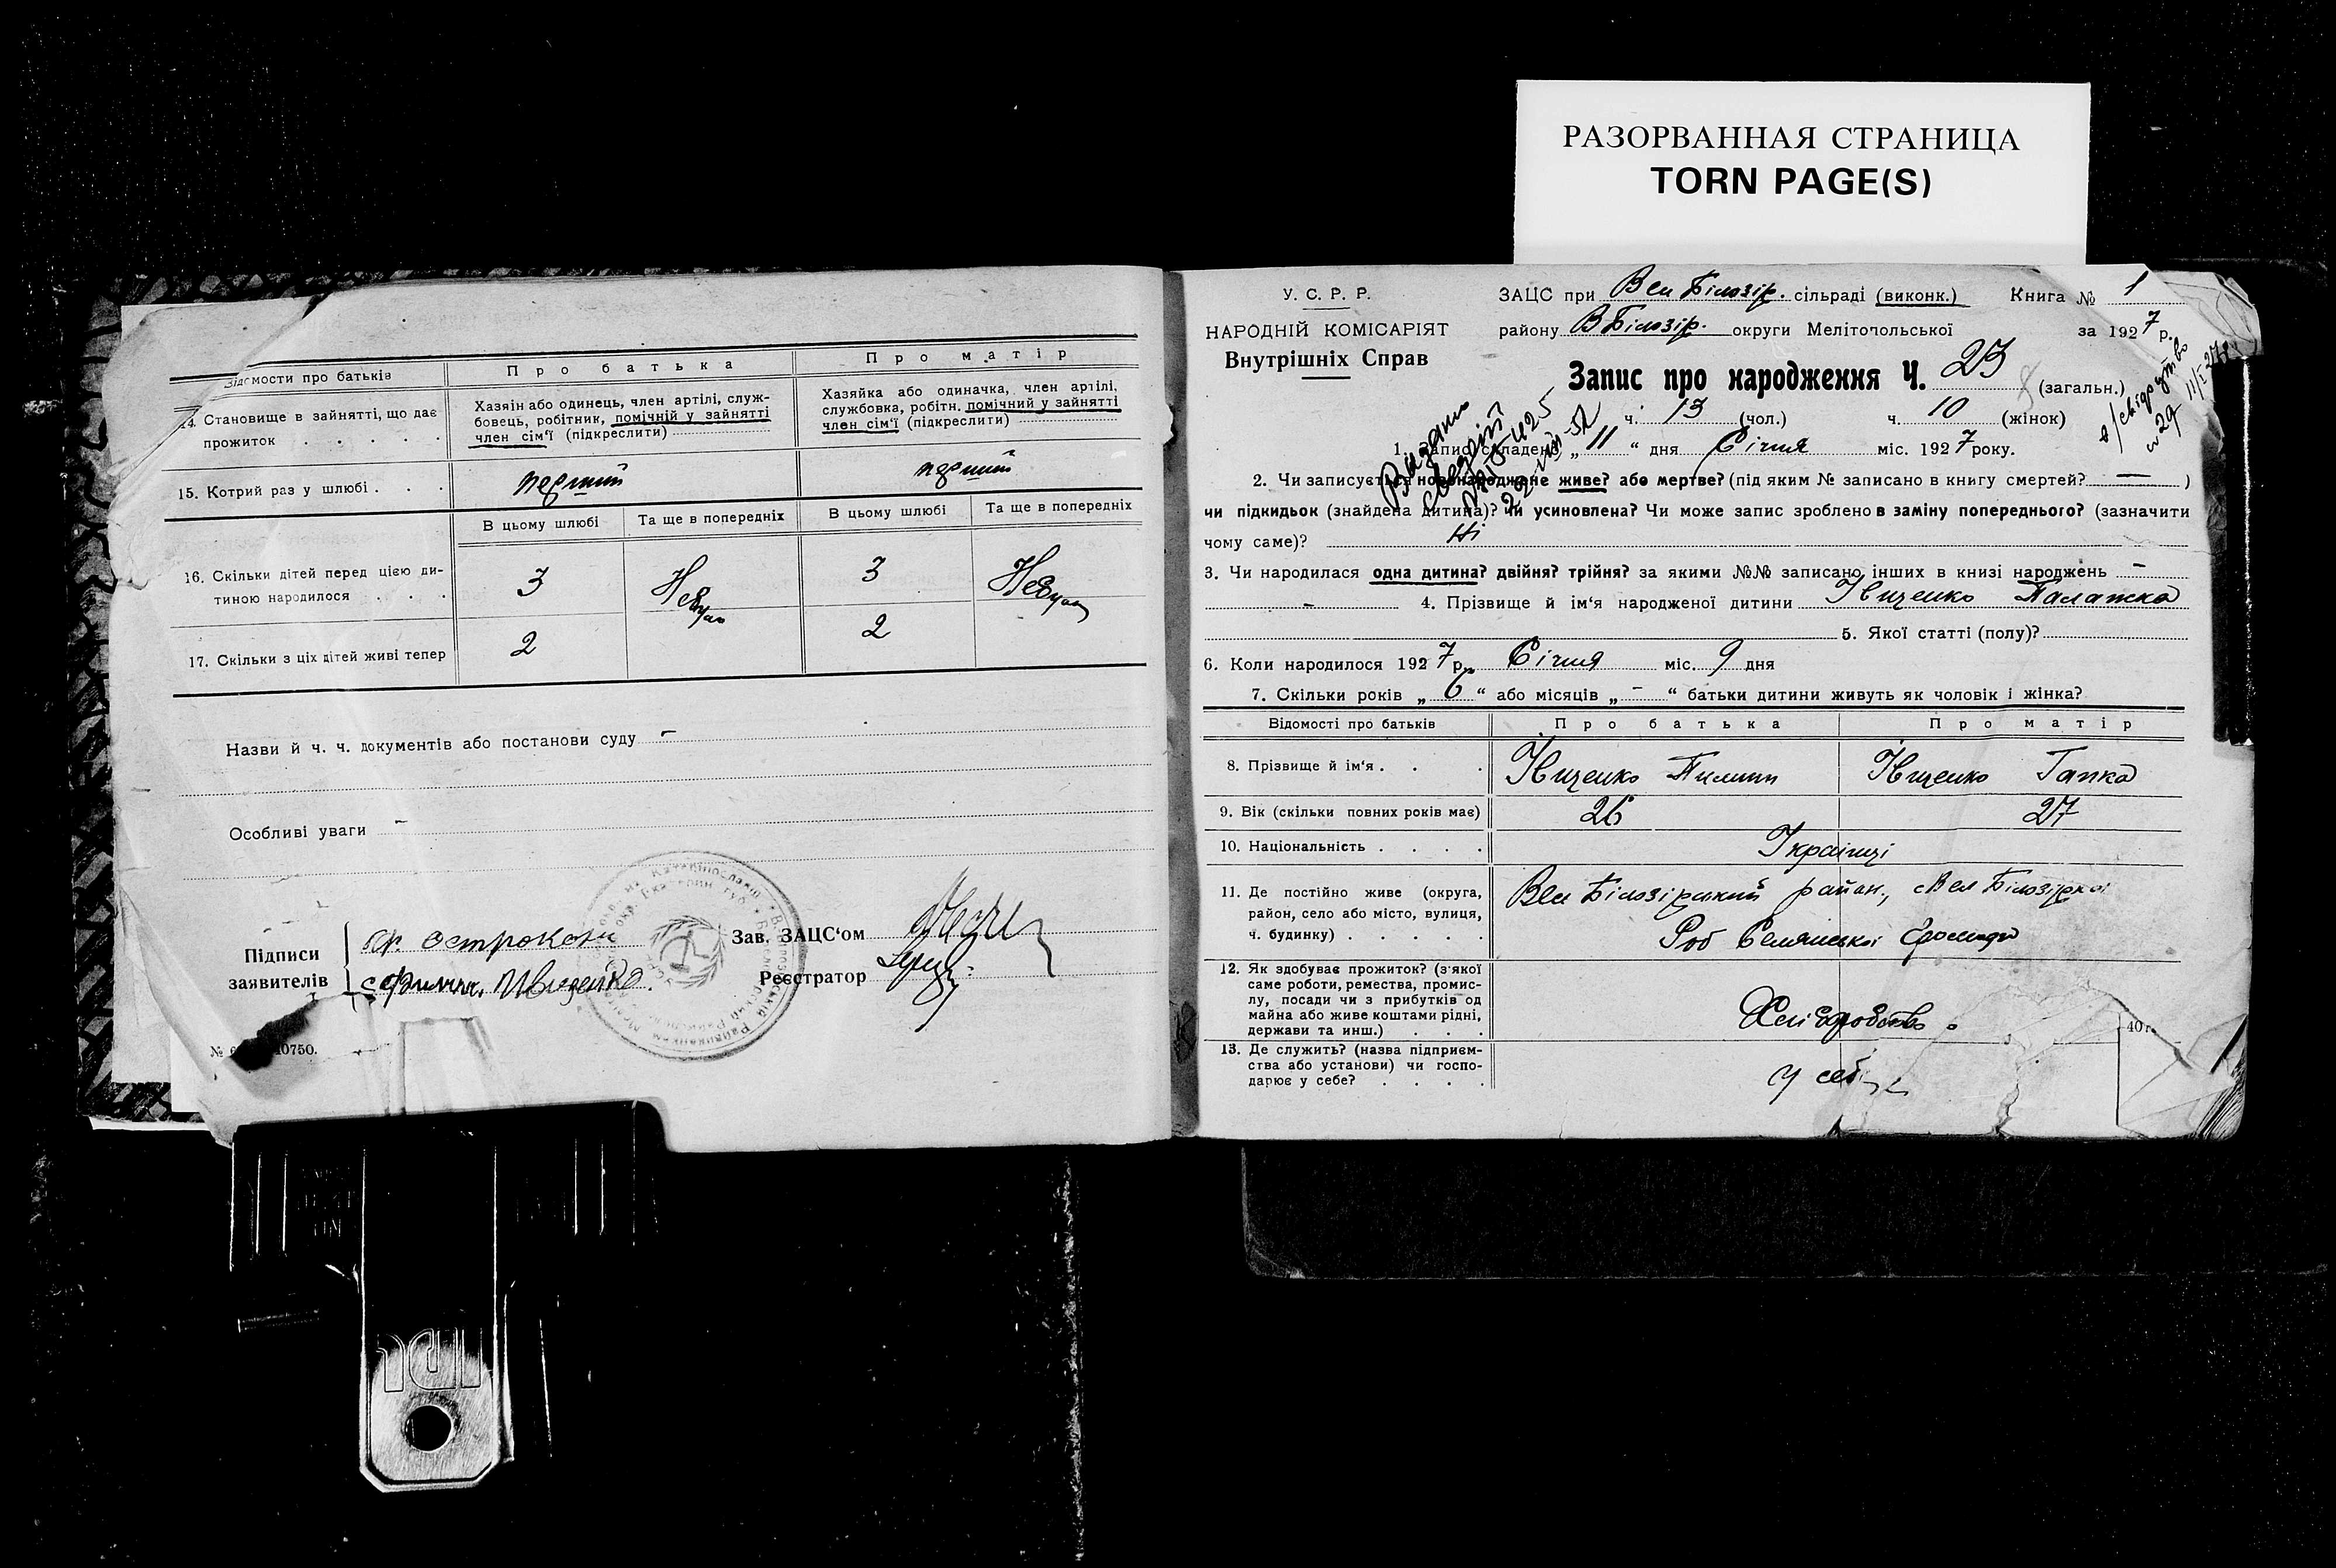 РАЗОРВАННАЯ СТРАНИЦА
TORN PAGE(S)
Відомости про батьків
Про батька
Про матір
14. Становище в зайнятті, що дає
прожиток . . . . .
Хазяін або одинець, член артілі, служ-
бовець, робітник, помічній у зайнятті
член сім'ї (підкреслити)
Хазяйка або одиначка, член артілі,
службовка, робітн. помічний у зайнятті
член сім'ї (підкреслити)
15. Котрий раз у шлюбі . . .
перший
перший
В цьому шлюбі
Та ще в попередніх
В цьому шлюбі
Та ще в попередніх
16. Скільки дітей перед цією ди-
тиною народилося . . .
3
3
17. Скільки з ціх дітей живі тепер
2
2
Назви й ч. ч. документів або постанови суду —
Особливі уваги —
Підписи
заявителів
Филип. Ивщенко
Зав. ЗАЦС'ом
Реєстратор
10750.
У. С. Р. Р.
НАРОДНІЙ КОМІСАРІЯТ
Внутрішніх Справ
ЗАЦС при Вел Білозір. сільраді (виконк.)
Книга № 1
району В Білозір. округи Мелітопольської
за 1927 р.
Запис про народження Ч. 23 (загальн.)
ч. 13 (чол.) ч. 10 (жінок)
1. Запис складено „11" дня Січня міс. 1927 року.
2. Чи записується новонароджене живе? або мертве? (під яким № записано в книгу смертей? — )
чи підкидьок (знайдена дитина)? Чи усиновлена? Чи може запис зроблено в заміну попереднього? (зазначити
чому саме)? Ні
3. Чи народилася одна дитина? двійня? трійня? за якими №№ записано інших в книзі народжень —
— 4. Прізвище й ім'я народженої дитини Івщенко Палажка
5. Якої статті (полу)?
6. Коли народилося 1927 р. Січня міс. 9 дня
7. Скільки років „6" або місяців „—" батьки дитини живуть як чоловік і жінка?
Відомості про батьків
Про батька
Про матір
8. Прізвище й ім'я . . .
Івщенко Пилип
Івщенко Гапка
9. Вік (скільки повних років має)
26
27
10. Національність . . . .
Українці
11. Де постійно живе (округа,
район, село або місто, вулиця,
ч. будинку) . . . . .
Вел Білозірський район, с Вел Білозірка
12. Як здобуває прожиток? (з'якої
саме роботи, ремества, промис-
лу, посади чи з прибутків од
майна або живе коштами рідні,
держави та инш.) . . .
Хліборобство
13. Де служить? (назва підприєм-
ства або установи) чи госпо-
дарює у себе? . . . .
у себе